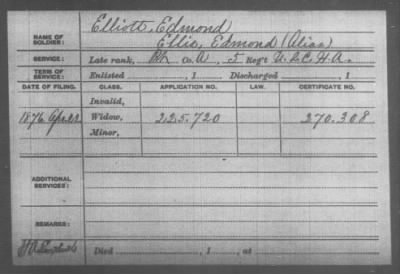 Elliott, Edmond
NAME OF SOLDIER: Ellis, Edmond (Alias)
SERVICE: Late rank, Co. A, 5 Reg't U.S.C.H.A.
TERM OF SERVICE: Enlisted , 1 Discharged , 1
DATE OF FILING. CLASS. APPLICATION NO. LAW. CERTIFICATE NO.
Invalid,
1876 Apr. Widow, 225.720 270.308
Minor,
ADDITIONAL SERVICES:
REMARKS:
Died , 1 , at